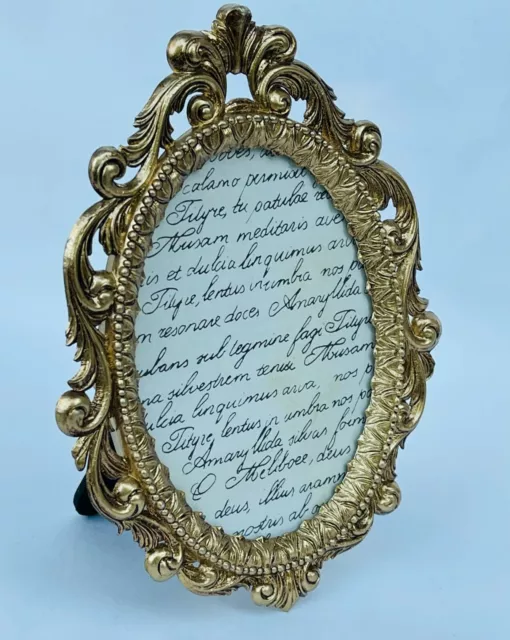 calamo permisit
Tityre, tu patulae
Musam meditaris
is et dulcia linquimus arva
Tityre, lentus in umbra nos
m resonare doces Amaryllida
ubans sub tegmine fagi Tityre
na silvestrem tenui Musam
dulcia linquimus arva, nos p
Tityre, lentus in umbra nos
Amaryllida silvas
O Meliboee, deus
deus, illius aram
nostris ab